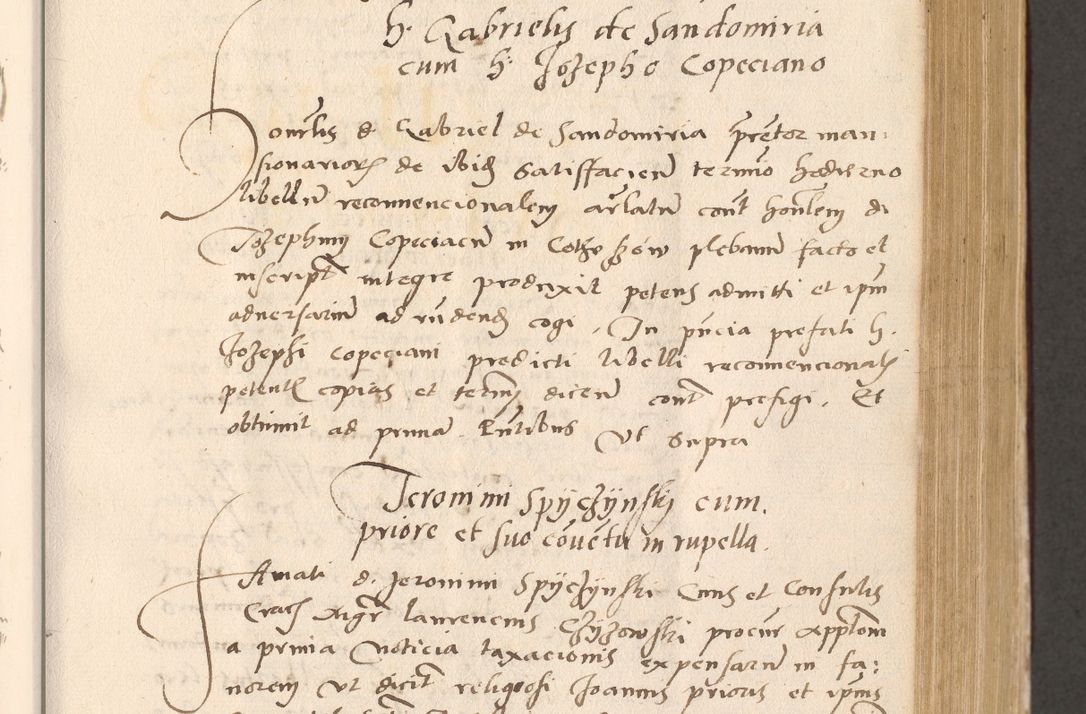 h. Gabrielis de Sandomiria
cum h. Jozepho Copeciano
Honorabilis d. Gabriel de Sandomiria preceptor man-
sionariorum de ibid satisfaciens termino hodierno
libellum reconvencionalem contra honorabilem d.
Jozephum Copeciacum in plebanum facto et
inscriptum integre produxit petens admitti et ipsum
adversarium ad rñdendum cogi. In pñcia prefati h.
Jozephi Copeciani predicti libelli reconvencionalis
petentis copias et termin dicendum contra prefigi. Et
obtinuit ad primam. Pñtibus ut supra
Jeronimi Spÿczÿnski cum
priore et suo covetu in rupella.
Amati d. Jeronimi Spÿczÿnski Civis et Consulis
Crac Mgr Laurencius procur
a prima Noticia taxacionis expensarum in fa-
vorem ut dicit religiosi Joannis prioris et ipsius